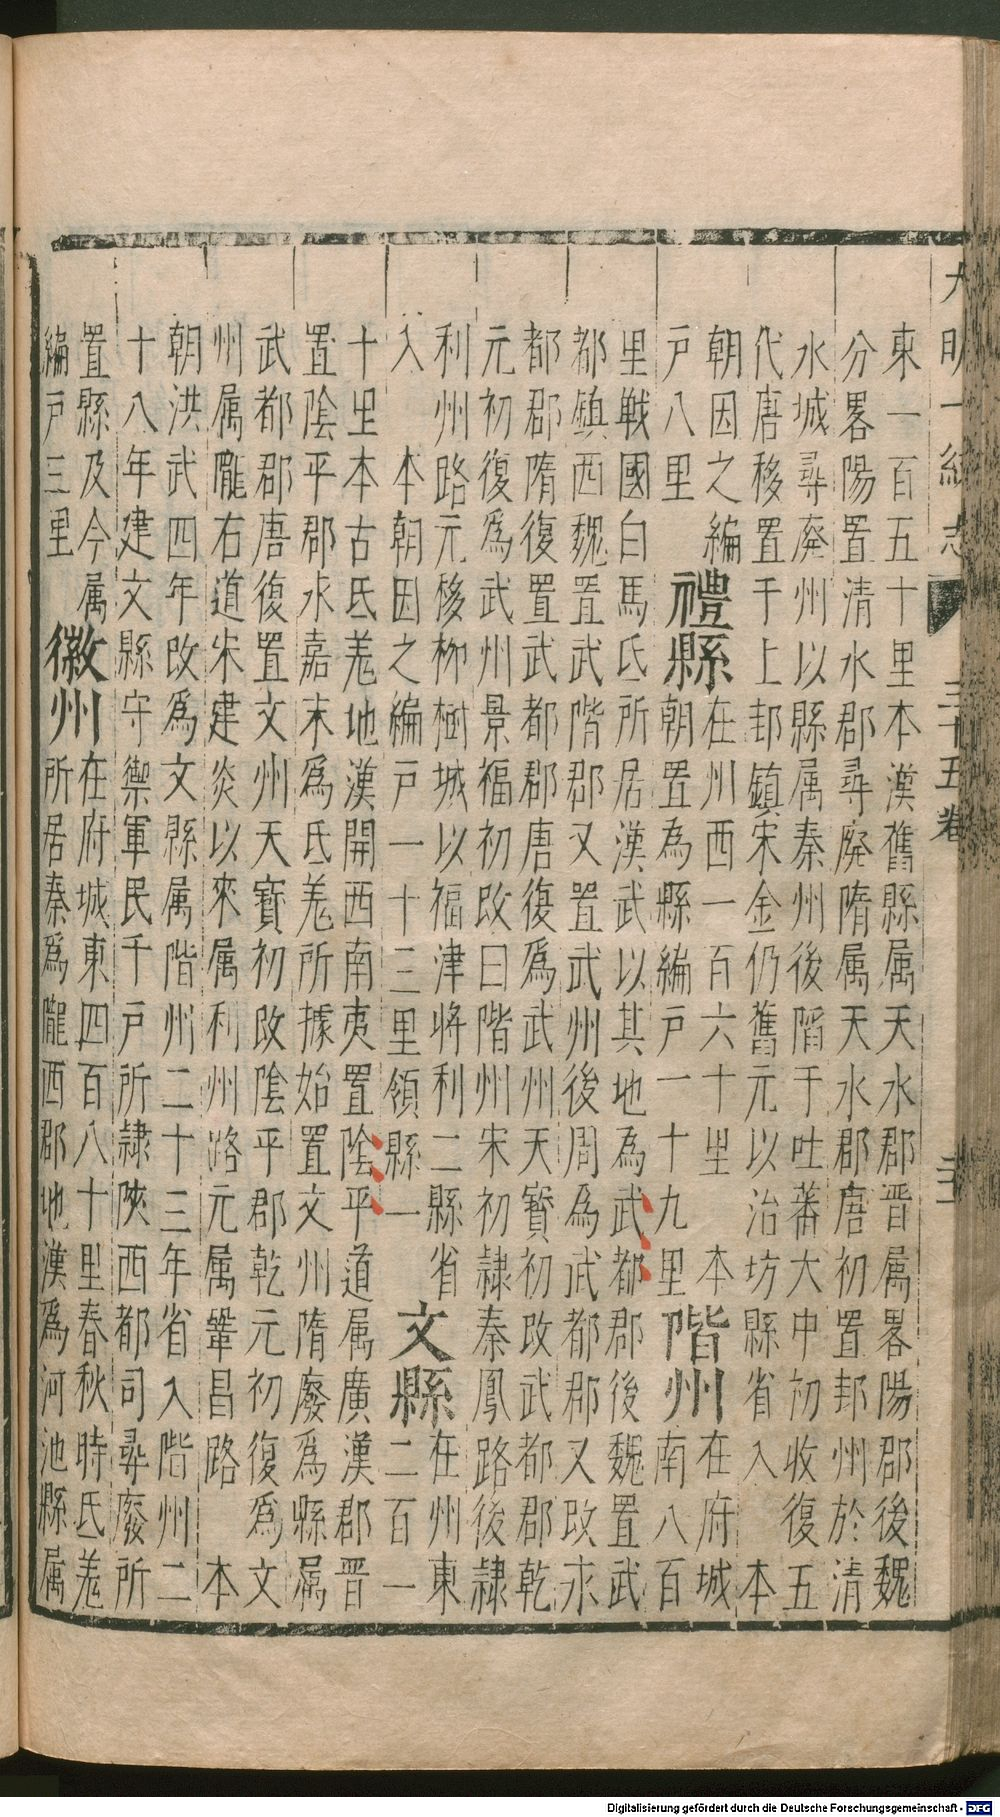 大明一統志 三十五卷 三
東一百五十里本漢舊縣属天水郡晋属畧陽郡後魏
分畧陽置清水郡尋廢隋属天水郡唐初置邽州於清
水城尋廢州以縣属秦州後陷于吐蕃大中初收復五
代唐移置于上邽鎮宋金仍舊元以治坊縣省入 本
朝因之編
戸八里
禮縣
在州西一百六十里 本
朝置為縣編戸一十九里
階州
在府城
南八百
里戰國白馬氐所居漢武以其地為武都郡後魏置武
都鎮西魏置武階郡又置武州後周為武都郡又改永
都郡隋復置武都郡唐復為武州天寳初改武都郡乾
元初復為武州景福初改曰階州宋初隷秦鳳路後隷
利州路元移栁樹城以福津將利二縣省
入 本朝因之編戸一十三里領縣一
文縣
在州東
二百一
十里本古氐羌地漢開西南夷置陰平道属廣漢郡晋
置陰平郡永嘉末為氐羌所據始置文州隋廢為縣属
武都郡唐復置文州天寳初改陰平郡乾元初復為文
州属隴右道宋建炎以來属利州路元属鞏昌路 本
朝洪武四年改為文縣属階州二十三年省入階州二
十八年建文縣守禦軍民千戸所隷陜西都司尋廢所
置縣及今属
編戸三里
徽州
在府城東四百八十里春秋時氐羌
所居秦為隴西郡地漢為河池縣属
Digitalisierung gefördert durch die Deutsche Forschungsgemeinschaft - DFG